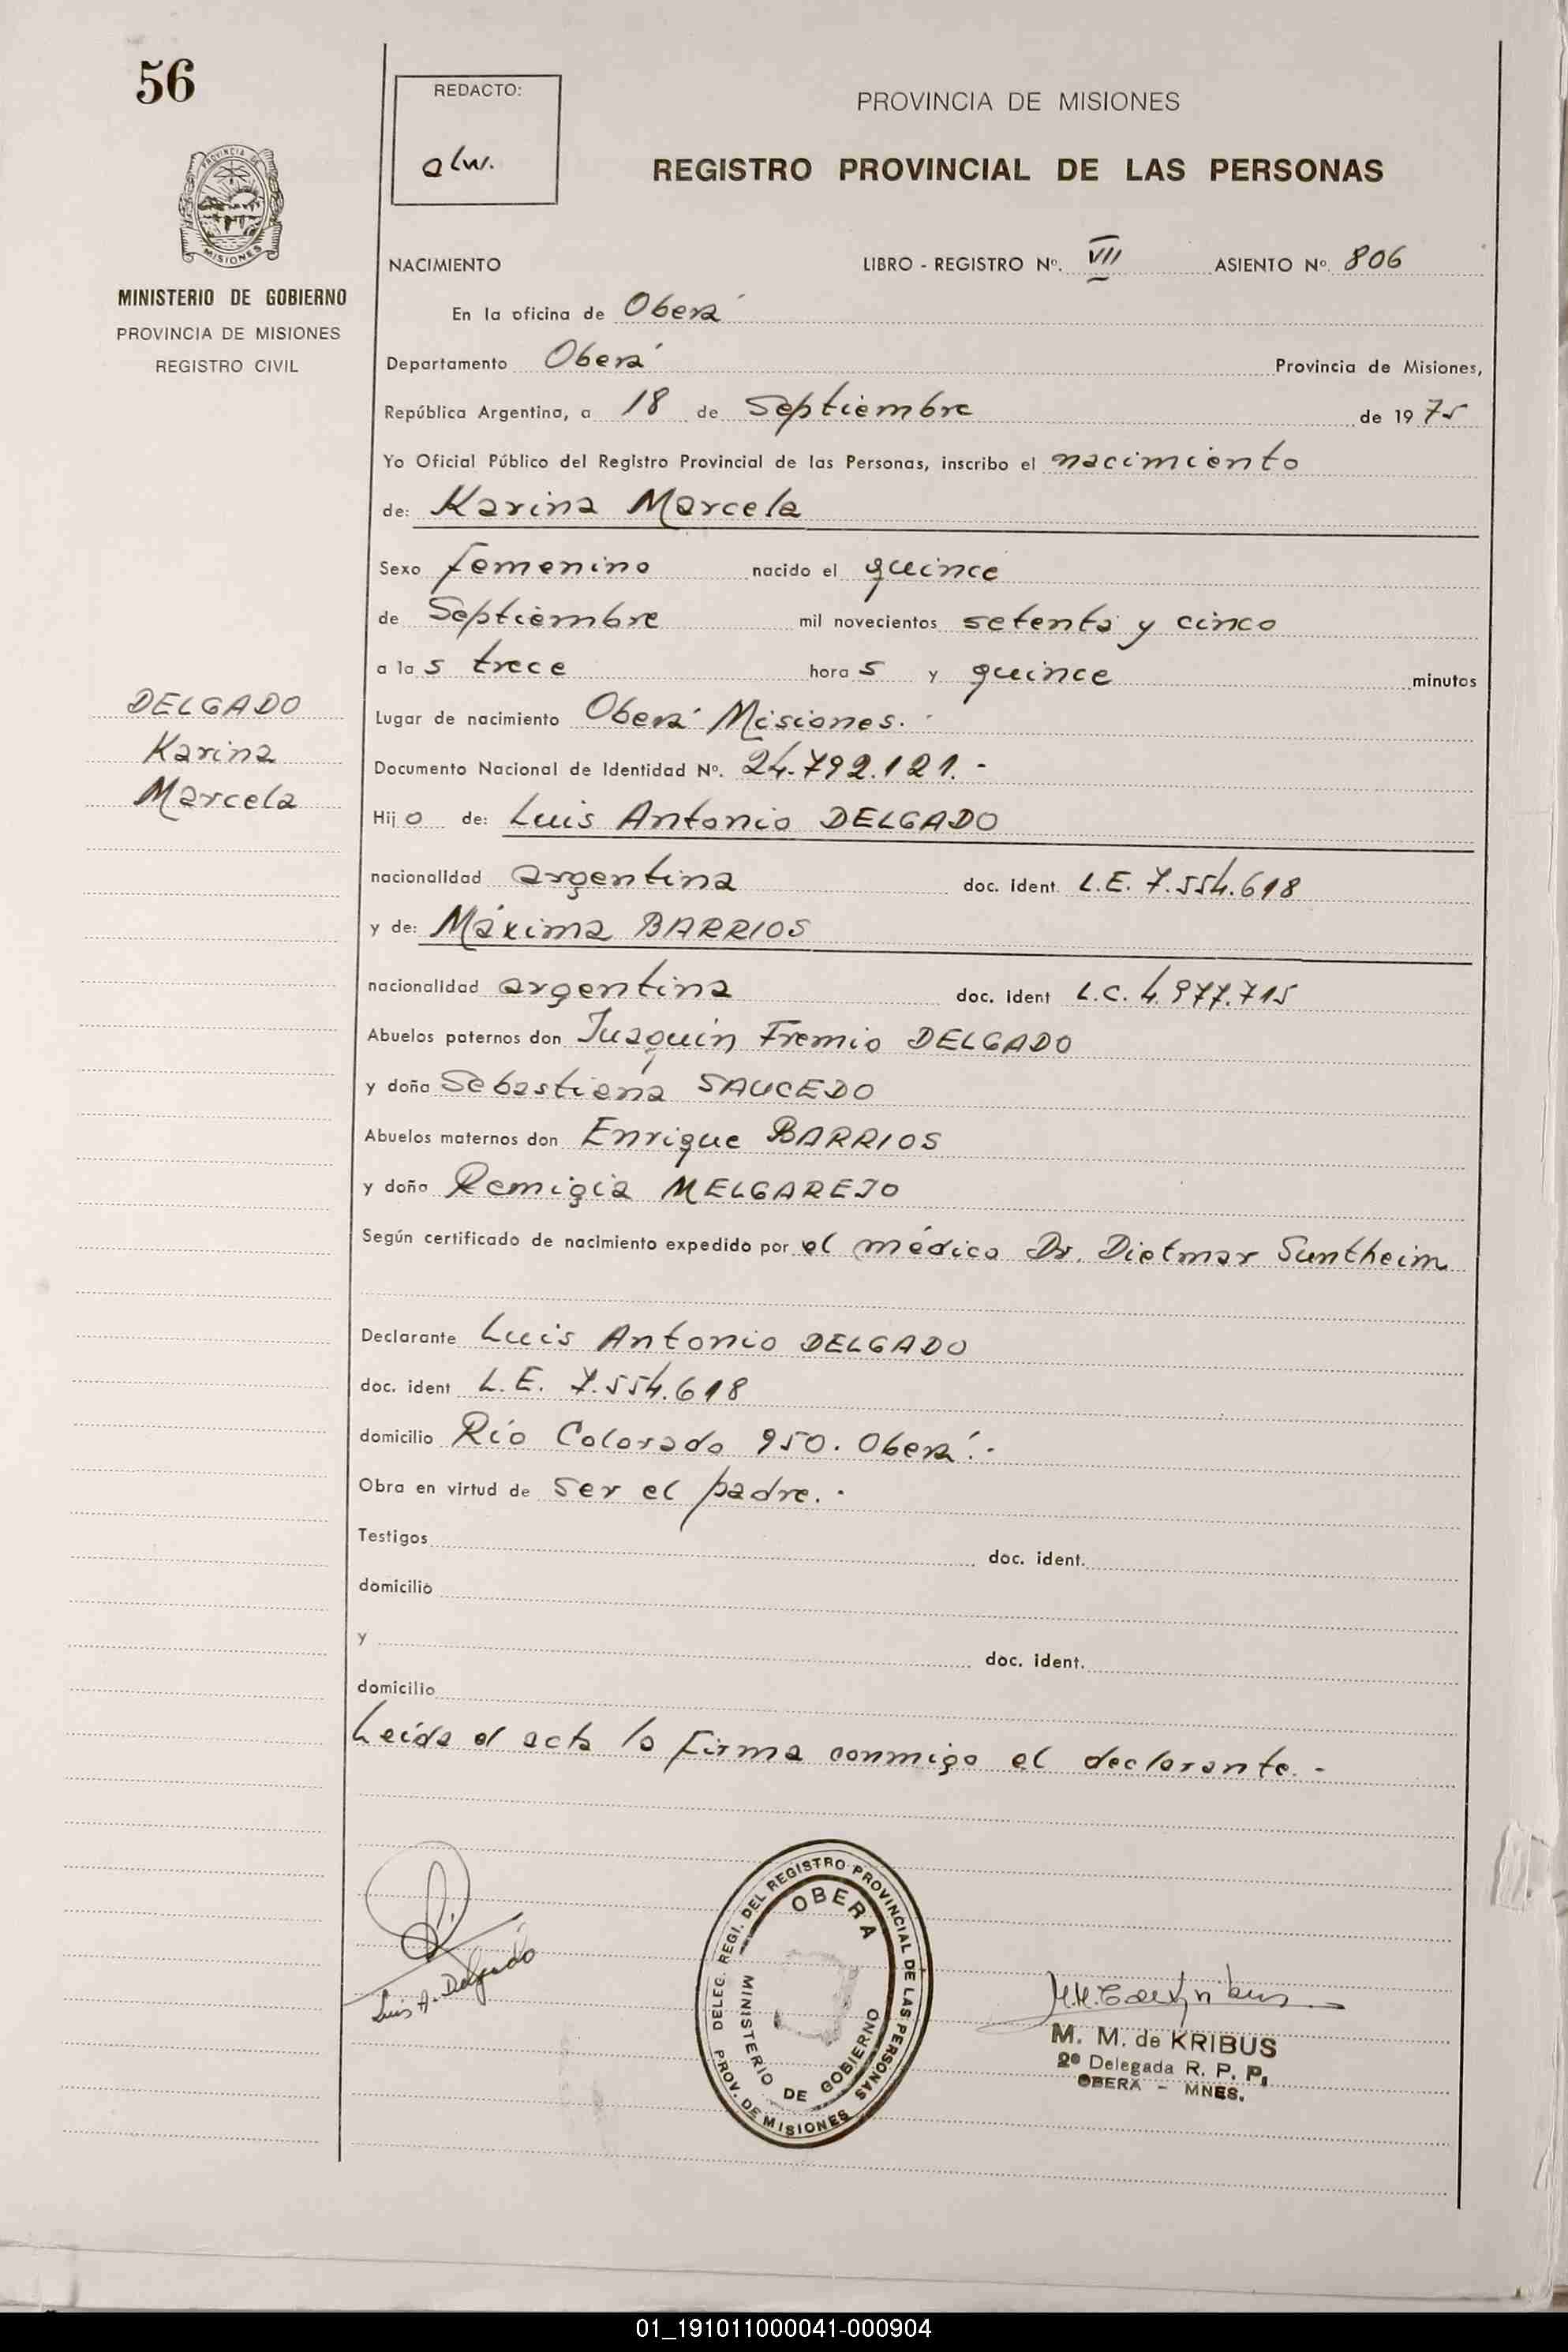 56
REDACTO:
alw.
PROVINCIA DE MISIONES
REGISTRO PROVINCIAL DE LAS PERSONAS
PROVINCIA DE
MISIONES
MINISTERIO DE GOBIERNO
PROVINCIA DE MISIONES
REGISTRO CIVIL
DELGADO
Karina
Marcela
NACIMIENTO LIBRO - REGISTRO Nº. VII ASIENTO Nº. 806
En la oficina de Oberá
Departamento Oberá Provincia de Misiones,
República Argentina, a 18 de Septiembre de 1975
Yo Oficial Público del Registro Provincial de las Personas, inscribo el nacimiento
de: Karina Marcela
Sexo femenino nacido el quince
de Septiembre mil novecientos setenta y cinco
a las trece horas y quince minutos
Lugar de nacimiento Oberá Misiones.
Documento Nacional de Identidad Nº. 24.792.121.-
Hijo de: Luis Antonio DELGADO
nacionalidad argentina doc. ident. L.E. 7.554.618
y de: Máxima BARRIOS
nacionalidad argentina doc. ident L.C. 4.977.715
Abuelos paternos don Juaquín Fremio DELGADO
y doña Sebastiana SAUCEDO
Abuelos maternos don Enrique BARRIOS
y doña Remigia MELGAREJO
Según certificado de nacimiento expedido por el médico Dr. Dietmar Suntheim
Declarante Luis Antonio DELGADO
doc. ident L.E. 7.554.618
domicilio Río Colorado 950. Oberá.-
Obra en virtud de ser el padre.-
Testigos doc. ident.
domicilio
y doc. ident.
domicilio
Leída el acta la firma conmigo el declarante.-
Luis A. Delgado
DELEG. REGI. DEL REGISTRO PROVINCIAL DE LAS PERSONAS
PROV. DE MISIONES
OBERA
MINISTERIO DE GOBIERNO
M. M. de KRIBUS
2º Delegada R. P. P.
OBERA - MNES.
01_191011000041-000904